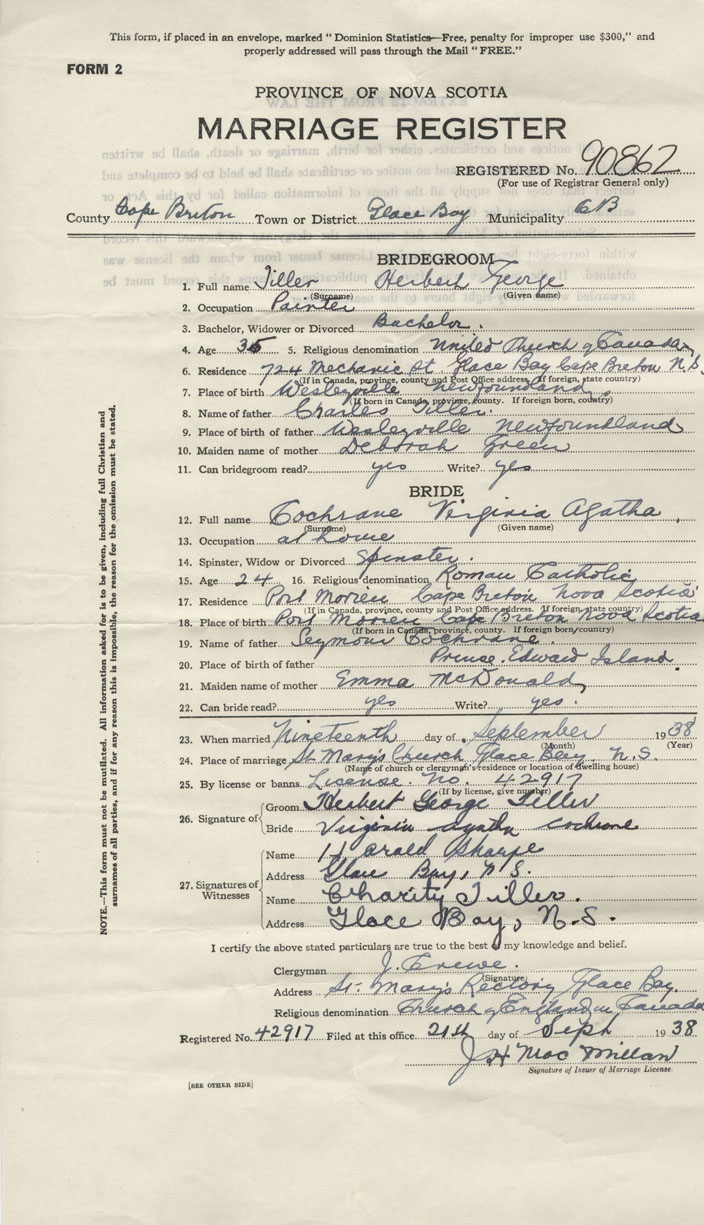 This form, if placed in an envelope, marked "Dominion Statistics—Free, penalty for improper use $300," and
properly addressed will pass through the Mail "FREE."
FORM 2
PROVINCE OF NOVA SCOTIA
MARRIAGE REGISTER
REGISTERED No. 90862
(For use of Registrar General only)
County Cape Breton Town or District Glace Bay Municipality CB
BRIDEGROOM
1. Full name Tiller Herbert George
(Surname) (Given name)
2. Occupation Painter
3. Bachelor, Widower or Divorced Bachelor.
4. Age 35 5. Religious denomination United Church of Canada
6. Residence 724 Mechanic St. Glace Bay Cape Breton N.S.
(If in Canada, province, county and Post Office address. If foreign, state country)
7. Place of birth Wesleyville Newfoundland
(If born in Canada, province, county. If foreign born, country)
8. Name of father Charles Tiller.
9. Place of birth of father Wesleyville Newfoundland
10. Maiden name of mother Deborah Green
11. Can bridegroom read? yes Write? yes
BRIDE
12. Full name Cochrane Virginia Agatha.
(Surname) (Given name)
13. Occupation at home
14. Spinster, Widow or Divorced Spinster.
15. Age 24 16. Religious denomination Roman Catholic
17. Residence Port Morien Cape Breton Nova Scotia
(If in Canada, province, county and Post Office address. If foreign, state country)
18. Place of birth Port Morien Cape Breton Nova Scotia
(If born in Canada, province, county. If foreign born, country)
19. Name of father Seymour Cochrane.
20. Place of birth of father Prince Edward Island
21. Maiden name of mother Emma McDonald
22. Can bride read? yes Write? yes.
23. When married Nineteenth day of September 1938
(Month) (Year)
24. Place of marriage St. Mary's Church Glace Bay, N.S.
(Name of church or clergyman's residence or location of dwelling house)
25. By license or banns License No. 42917
(If by license, give number)
26. Signature of
Groom Herbert George Tiller
Bride Virginia Agatha Cochrane
27. Signatures of Witnesses
Name Harald Sharpe
Address Glace Bay, N.S.
Name Charity Tiller.
Address Glace Bay, N.S.
I certify the above stated particulars are true to the best of my knowledge and belief.
Clergyman J. Crewe.
(Signature)
Address St. Mary's Rectory Glace Bay.
Religious denomination Church of England in Canada
Registered No. 42917 Filed at this office 21st day of Sept 1938
J H MacMillan
Signature of Issuer of Marriage License.
[SEE OTHER SIDE]
NOTE.—This form must not be mutilated. All information asked for is to be given, including full Christian and
surnames of all parties, and if for any reason this is impossible, the reason for the omission must be stated.